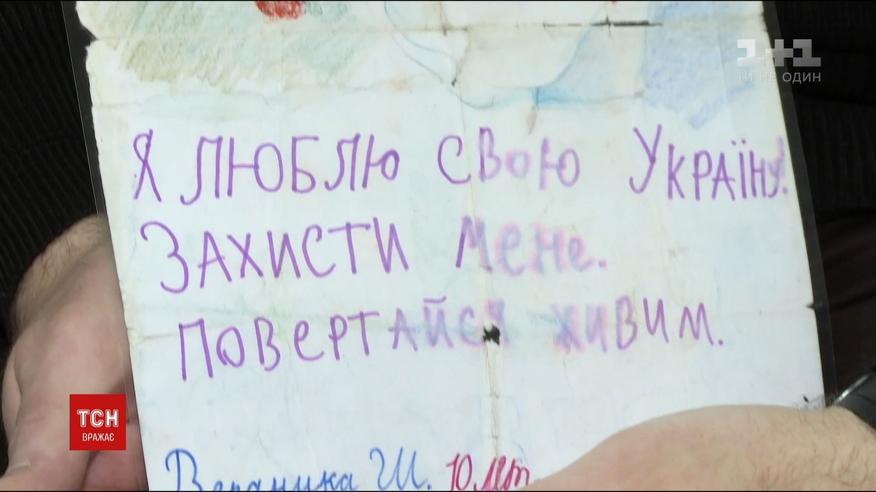 1+1
ТИ НЕ ОДИН
Я ЛЮБЛЮ СВОЮ УКРАЇНУ!
ЗАХИСТИ МЕНЕ.
ПОВЕРТАЙСЯ ЖИВИМ.
Вероника Ш. 10 лет
ТСН
ВРАЖАЄ